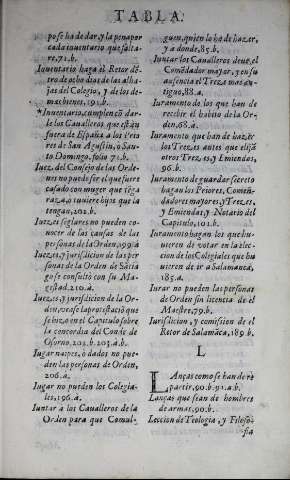 TABLA.
po se ha de dar, y la pena por
cada inuentario que falta-
re, 71. b.
Inuentario haga el Retor dē-
tro de ocho dias de las alha-
jas del Colegio, y de los de-
mas bienes, 191. b.
*Inuentario, cumplen cō dar-
le los Caualleros que estā
fuera de España, a los Prio
res de San Agustin, o San-
to Domingo. folio 71. b.
Iuez, del Consejo de las Orde-
nes no puede ser el que fuere
casado con muger que tēga
raza, o tuuiere hijos que la
tengan, 202. b.
Iuezes seglares no pueden co-
nocer de las causas de las
personas de la Orden, 199. a
Iuezes, y jurisdicion de las per
sonas de la Orden de Sātia
go se consultó con su Ma-
gestad, 210. a.
Iuezes, y jurisdicion de la Or-
den, vease la protestació que
se hizo en el Capitulo sobre
la concordia del Conde de
Osorno, 202. b. 203. a. b.
Iugar naipes, ò dados no pue-
den las personas de Orden,
206. a.
Iugar no pueden los Colegia-
les, 196. a.
Iuntar a los Caualleros de la
Orden para que Comul-
guen, quien lo ha de hazer,
y a donde, 85. b.
Iuntar los Caualleros deue el
Comēdador mayor, y en su
ausencia el Treze mas an-
tiguo, 88. a.
Iuramento de los que han de
recebir el habito de la Or-
den, 68. a.
Iuramento que han de hazer
los Trezes antes que elijā
otros Trezes, y Emiendas,
96. b.
Iuramento de guardar secreto
hagan los Priores, Comen-
dadores mayores, y Trezes,
y Emiendas, y Notario del
Capitulo, 102. b.
Iuramento hagan los que hu-
uieren de votar en la elec-
cion de los Colegiales que hu
uieren de ir a Salamanca,
185. a.
Iurar no pueden las personas
de Orden sin licencia de el
Maestre, 79. b.
Iurisdicion, y comision de el
Retor de Salamāca, 189. b.
L
LAnças como se han de re
partir, 90. b. 91. a. b.
Lanças que sean de hombres
de armas, 90. b.
Leccion de Teologia, y Filoso-
fia